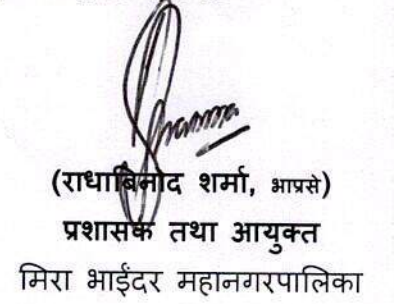 (राधाबिनोद शर्मा, भाप्रसे)
प्रशासक तथा आयुक्त
मिरा भाईंदर महानगरपालिका